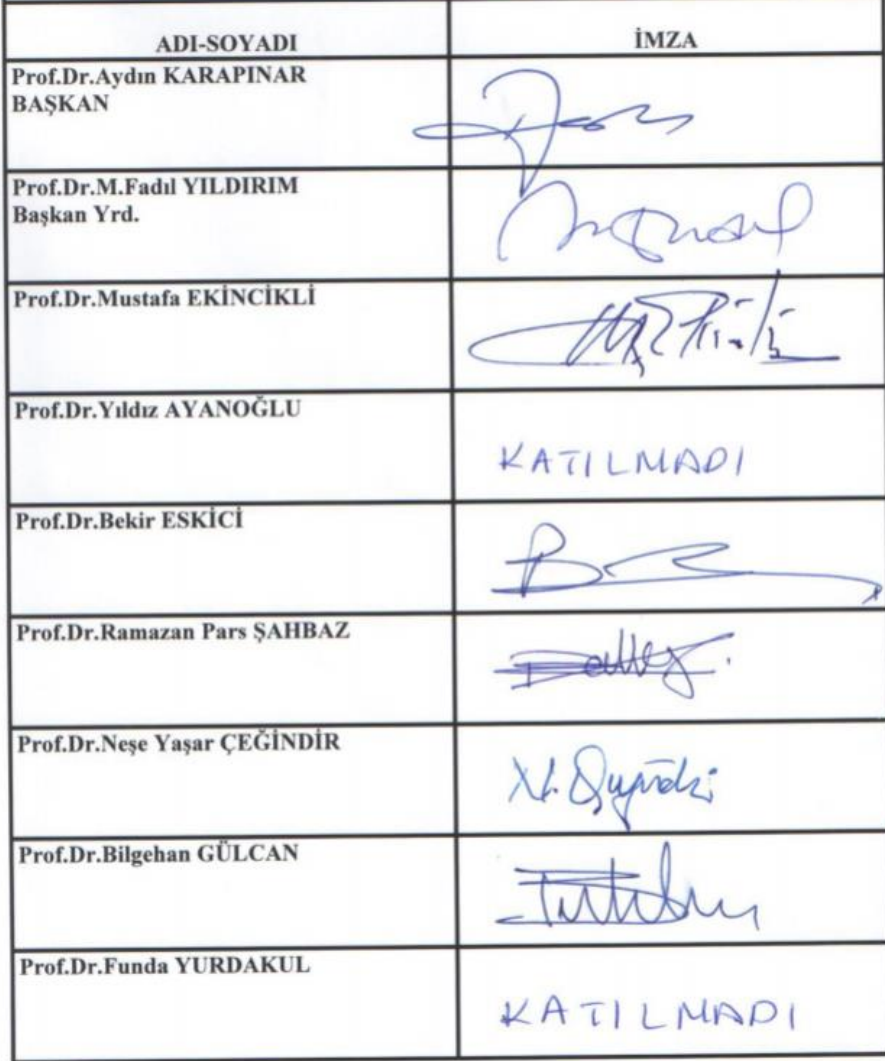 ADI-SOYADI İMZA
Prof.Dr.Aydın KARAPINAR
BAŞKAN
Prof.Dr.M.Fadıl YILDIRIM
Başkan Yrd.
Prof.Dr.Mustafa EKİNCİKLİ
Prof.Dr.Yıldız AYANOĞLU
KATILMADI
Prof.Dr.Bekir ESKİCİ
Prof.Dr.Ramazan Pars ŞAHBAZ
Prof.Dr.Neşe Yaşar ÇEĞİNDİR
Prof.Dr.Bilgehan GÜLCAN
Prof.Dr.Funda YURDAKUL
KATILMADI